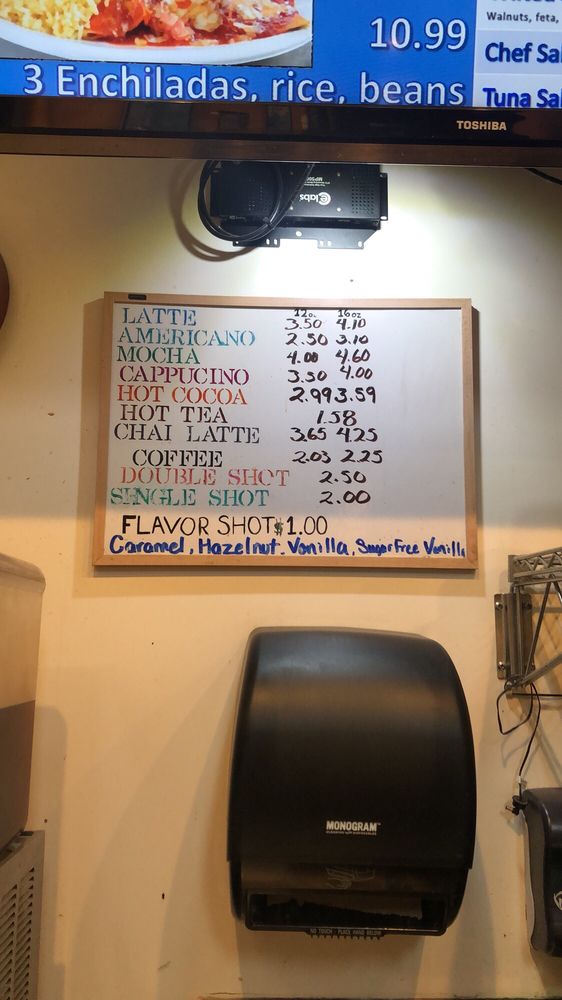 10.99
3 Enchiladas, rice, beans
Walnuts, feta,
Chef Sal
Tuna Sal
TOSHIBA
elabs
12o. 16oz
LATTE 3.50 4.10
AMERICANO 2.50 3.10
MOCHA 4.00 4.60
CAPPUCINO 3.50 4.00
HOT COCOA 2.99 3.59
HOT TEA 1.58
CHAI LATTE 3.65 4.25
COFFEE 2.03 2.25
DOUBLE SHOT 2.50
SINGLE SHOT 2.00
FLAVOR SHOT $1.00
Caramel, Hazelnut. Vanilla, Sugar Free Vanilla
MONOGRAM
NO TOUCH - PLACE HAND BELOW